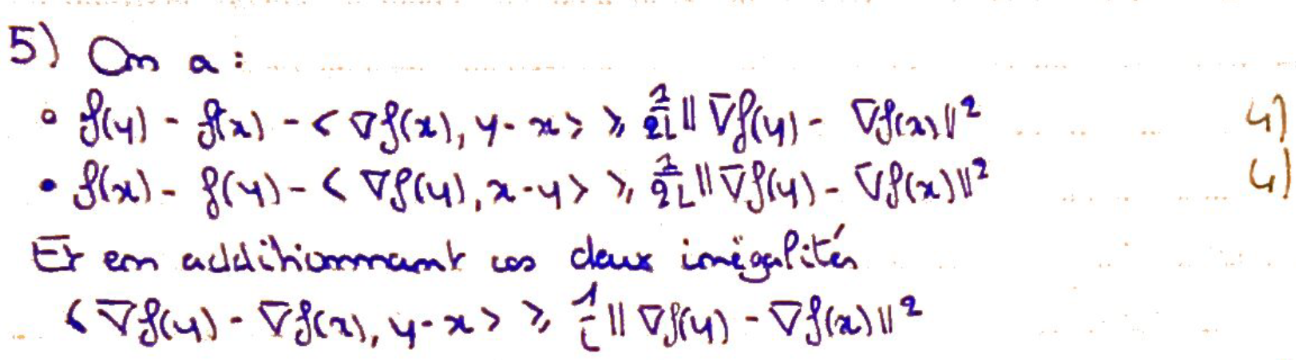 5) On a :
◦ f(y) - f(x) - < ∇f(x), y - x > ≥ 1/2L || ∇f(y) - ∇f(x) ||² 4)
• f(x) - f(y) - < ∇f(y), x - y > ≥ 1/2L || ∇f(y) - ∇f(x) ||² 4)
Et en additionnant ces deux inégalités
< ∇f(y) - ∇f(x), y - x > ≥ 1/L || ∇f(y) - ∇f(x) ||²